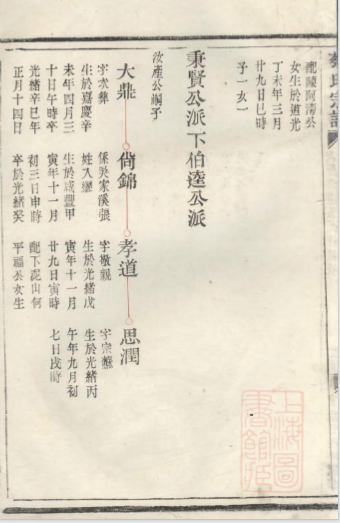 龍陵阿濤公
女生於道光
丁未年三月
廿九日巳時
子一亥一
秉賢公派下伯逵公派
汝產公嗣子
大鼎
字次彝
生於嘉慶辛
未年四月三
十日午時卒
光緒辛巳年
正月十四日
尙錦
係吳家溪張
姓入繼
生於咸豐甲
寅年十一月
初三日申時
卒於光緒癸
孝道
字敬親
生於光緒戊
寅年十一月
廿九日寅時
配下泥山何
平福公女生
思潤
字宗蘸
生於光緒丙
午年九月初
七日戌時
上海圖
書館藏